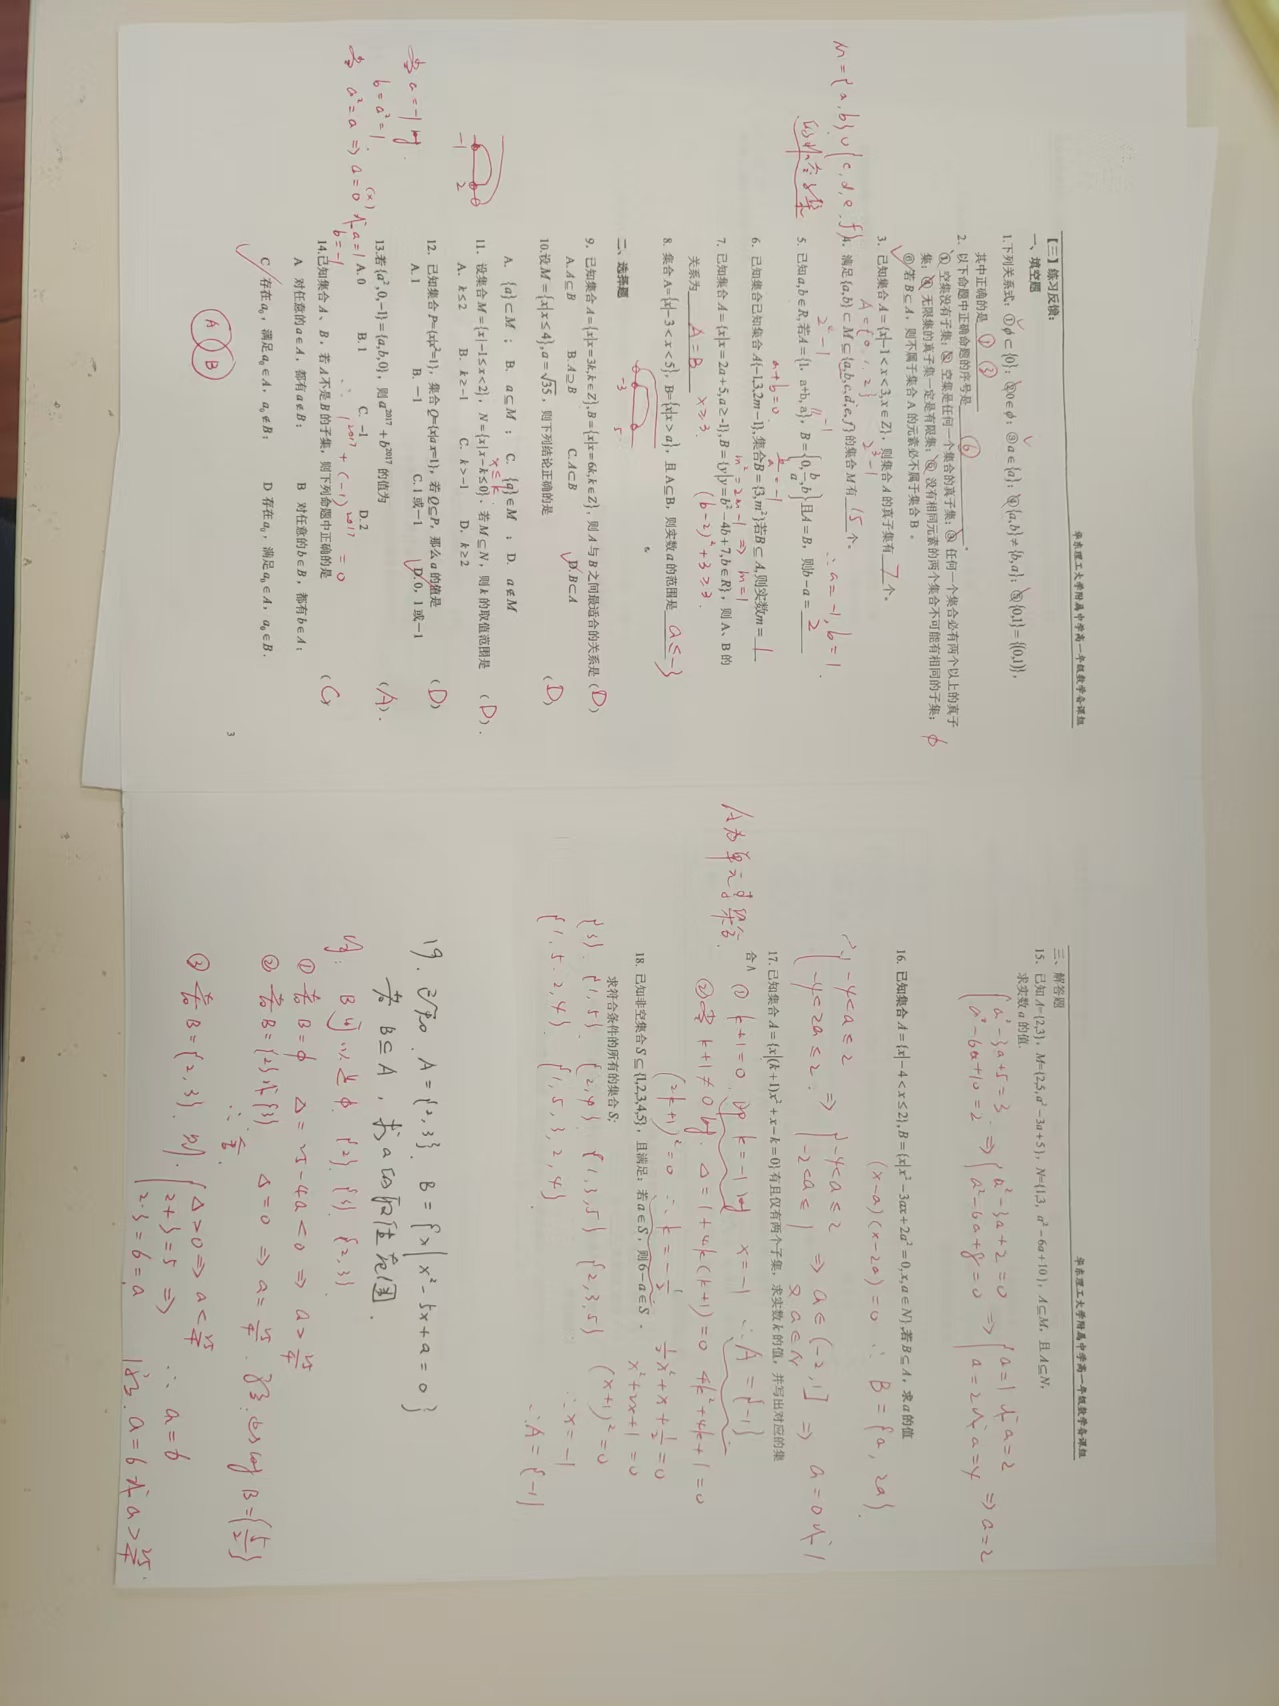 华东理工大学附属中学高一年级数学备课组
【三】练习反馈：
一、填空题
1.下列关系式：①φ⊂{0}；②0∈φ；③a∈{a}；④{a,b}≠{b,a}；⑤{0,1}={(0,1)}，
其中正确的是 ① ③
2．以下命题中正确命题的序号是 ⑥ 。
① 空集没有子集；② 空集是任何一个集合的真子集；③ 任何一个集合必有两个以上的真子
集；④ 无限集的真子集一定是有限集；⑤ 没有相同元素的两个集合不可能有相同的子集； φ
⑥ 若B⊆A，则不属于集合 A 的元素必不属于集合 B 。
3．已知集合A={x|-1<x<3,x∈Z}，则集合 A 的真子集有 7 个。
A={0,1,2} 2³-1
M={a,b}∪{c,d,e,f}
的非空子集
4．满足{a,b}⊂M⊆{a,b,c,d,e,f}的集合M有 15 个。
2⁴-1 ∴a=-1,b=1
5．已知a,b∈R,若A={1，a+b, a}，B={0, b/a, b}且A=B，则b-a= 2
-1
a+b=0 b/a=-1
6．已知集合已知集合A{-1,3,2m-1},集合B={3,m²}若B⊆A,则实数m= 1
m²=2m-1 ⇒ m=1
7．已知集合A={x|x=2a+5,a≥-1},B={y|y=b²-4b+7,b∈R}，则 A、B 的
关系为 A=B x≥3 (b-2)²+3≥3
8．集合 A={x|-3<x<5}，B={x|x>a}，且 A⊆B，则实数a的范围是 a≤-3
-3 5
二、选择题
9．已知集合A={x|x=3k,k∈Z},B={x|x=6k,k∈Z}，则 A 与 B 之间最适合的关系是（D）
A. A⊆B B. A⊇B C. A⊂B D. B⊂A
10.设M={x|x≤4},a=√35，则下列结论正确的是 （D）
A. {a}⊂M ； B. a⊆M ； C. {a}∈M ；D. a∉M
x≤k
11．设集合M={x|-1≤x<2}，N={x|x-k≤0}．若M⊆N，则k的取值范围是 （D）．
-1 2
A．k≤2 B．k≥-1 C．k>-1 D．k≥2
12．已知集合 P={x|x²=1}，集合 Q={x|a x=1}，若 Q⊆P，那么 a 的值是 （D）
A. 1 B. －1 C. 1 或－1 D. 0，1 或－1
当 a=-1 时
b=a²=1
13.若{a²,0,-1}={a,b,0}，则a²⁰¹⁷+b²⁰¹⁷的值为 （A）．
当 a²=a ⇒ a=0(×)或a=1
b=-1
A. 0 B. 1 C. -1 D. 2
∴ 1²⁰¹⁷+(-1)²⁰¹⁷=0
14.已知集合 A、B，若 A 不是 B 的子集，则下列命题中正确的是 （C）
A 对任意的a∈A，都有a∉B； B 对任意的b∈B，都有b∈A；
C 存在a₀，满足a₀∈A，a₀∉B； D 存在a₀，满足a₀∈A，a₀∈B．
A B
3
华东理工大学附属中学高一年级数学备课组
三、解答题
15．已知A={2,3}，M={2,5,a²-3a+5}，N={1,3, a²-6a+10}，A⊆M，且 A⊆N，
求实数 a 的值.
{a²-3a+5=3 ⇒ {a²-3a+2=0 ⇒ {a=1或a=2 ⇒ a=2
a²-6a+10=2 a²-6a+8=0 a=2或a=4
16. 已知集合A={x|-4<x≤2},B={x|x²-3ax+2a²=0,x,a∈N},若B⊆A，求a的值
(x-a)(x-2a)=0 ∴ B={a, 2a}
∴{-4<a≤2 ⇒ {-4<a≤2 ⇒ a∈(-2,1] ⇒ a=0或1
-4<2a≤2 -2<a≤1 又 a∈N
17. 已知集合A={x|(k+1)x²+x-k=0}有且仅有两个子集，求实数k的值，并写出对应的集
合 A
A为单元素集合
① k+1=0 即 k=-1时 x=-1 ∴A={-1}
②当 k+1≠0时. Δ=1+4k(k+1)=0 4k²+4k+1=0
(2k+1)²=0 ∴k=-1/2 1/2x²+x+1/2=0
x²+2x+1=0
(x+1)²=0
∴x=-1
∴A={-1}
18. 已知非空集合S⊆{1,2,3,4,5}，且满足：若a∈S，则6-a∈S ．
求符合条件的所有的集合 S;
{3}. {1,5}. {2,4} {1,3,5} {2,3,5}
{1,5,2,4} {1,5,3,2,4}
19. 已知 A={2,3}. B={x|x²-5x+a=0}
若 B⊆A，求a的取值范围.
解: B可以是φ {2} {3} {2,3}
① 若B=φ Δ=25-4a<0 ⇒ a>25/4
② 若B={2}或{3} Δ=0 ⇒ a=25/4. 此时 B={5/2}
∴舍.
③ 若B={2,3} 则. {Δ>0⇒a<25/4
2+3=5 ⇒ ∴ a=6
2·3=6=a
综上. a=6或a>25/4.